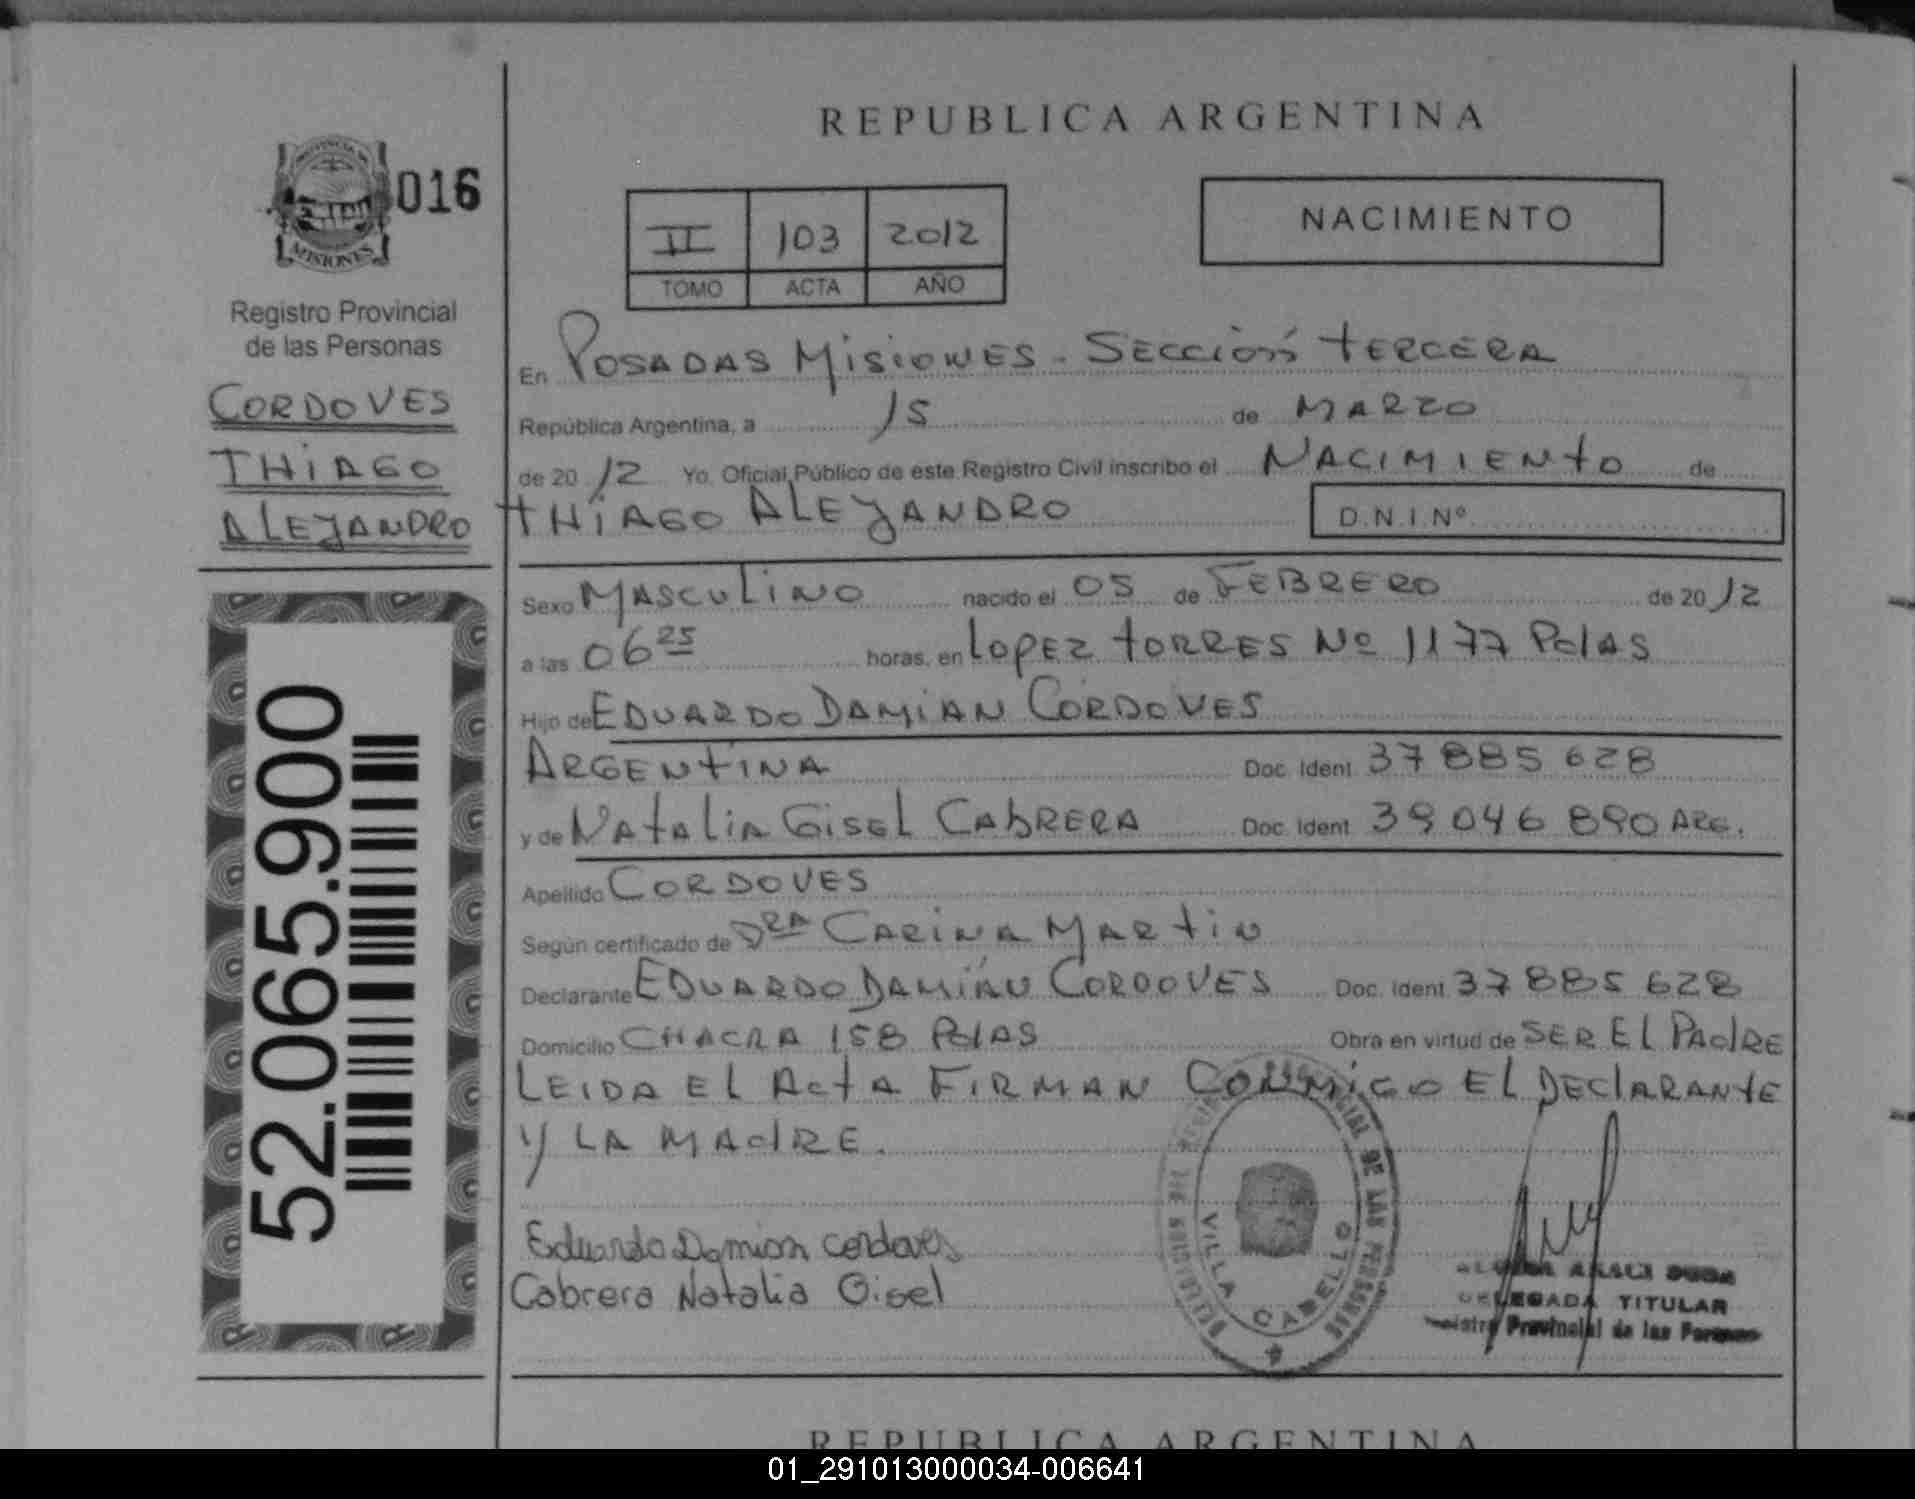 REPUBLICA ARGENTINA
PROVINCIA DE
MISIONES
016
Registro Provincial
de las Personas
CORDOVES
THIAGO
ALEJANDRO
52.065.900
II 103 2012
TOMO ACTA AÑO
NACIMIENTO
En POSADAS MISIONES - SECCIÓN TERCERA
República Argentina, a 15 de MARZO
de 20 12 Yo, Oficial Público de este Registro Civil inscribo el NACIMIENTO de
THIAGO ALEJANDRO D.N.I.Nº
Sexo MASCULINO nacido el 05 de FEBRERO de 20 12
a las 06 25 horas, en LOPEZ TORRES Nº 1177 PdAS
Hijo de EDUARDO DAMIAN CORDOVES
ARGENTINA Doc. Ident. 37 885 628
y de NATALIA GISEL CABRERA Doc. Ident. 39 046 890 ARG.
Apellido CORDOVES
Según certificado de DRA CARINA MARTIN
Declarante EDUARDO DAMIÁN CORDOVES Doc. Ident. 37 885 628
Domicilio CHACRA 158 PdAS Obra en virtud de SER EL PAdRE
LEIDA EL ActA FIRMAN CONMIGO EL DEClARANTE
Y LA MAdRE.
Eduardo Damian Cordoves
Cabrera Natalia Gisel
VILLA CABELLO
DE LAS PERSONAS
DELEGADA TITULAR
Provincial de las Personas
REPUBLICA ARGENTINA
01_291013000034-006641